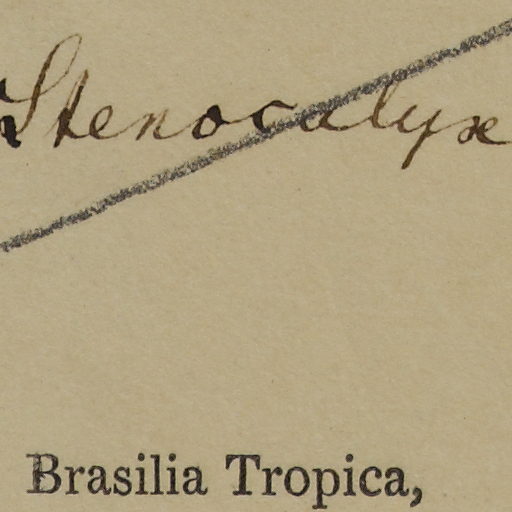 Stenocalyx
Brasilia Tropica,